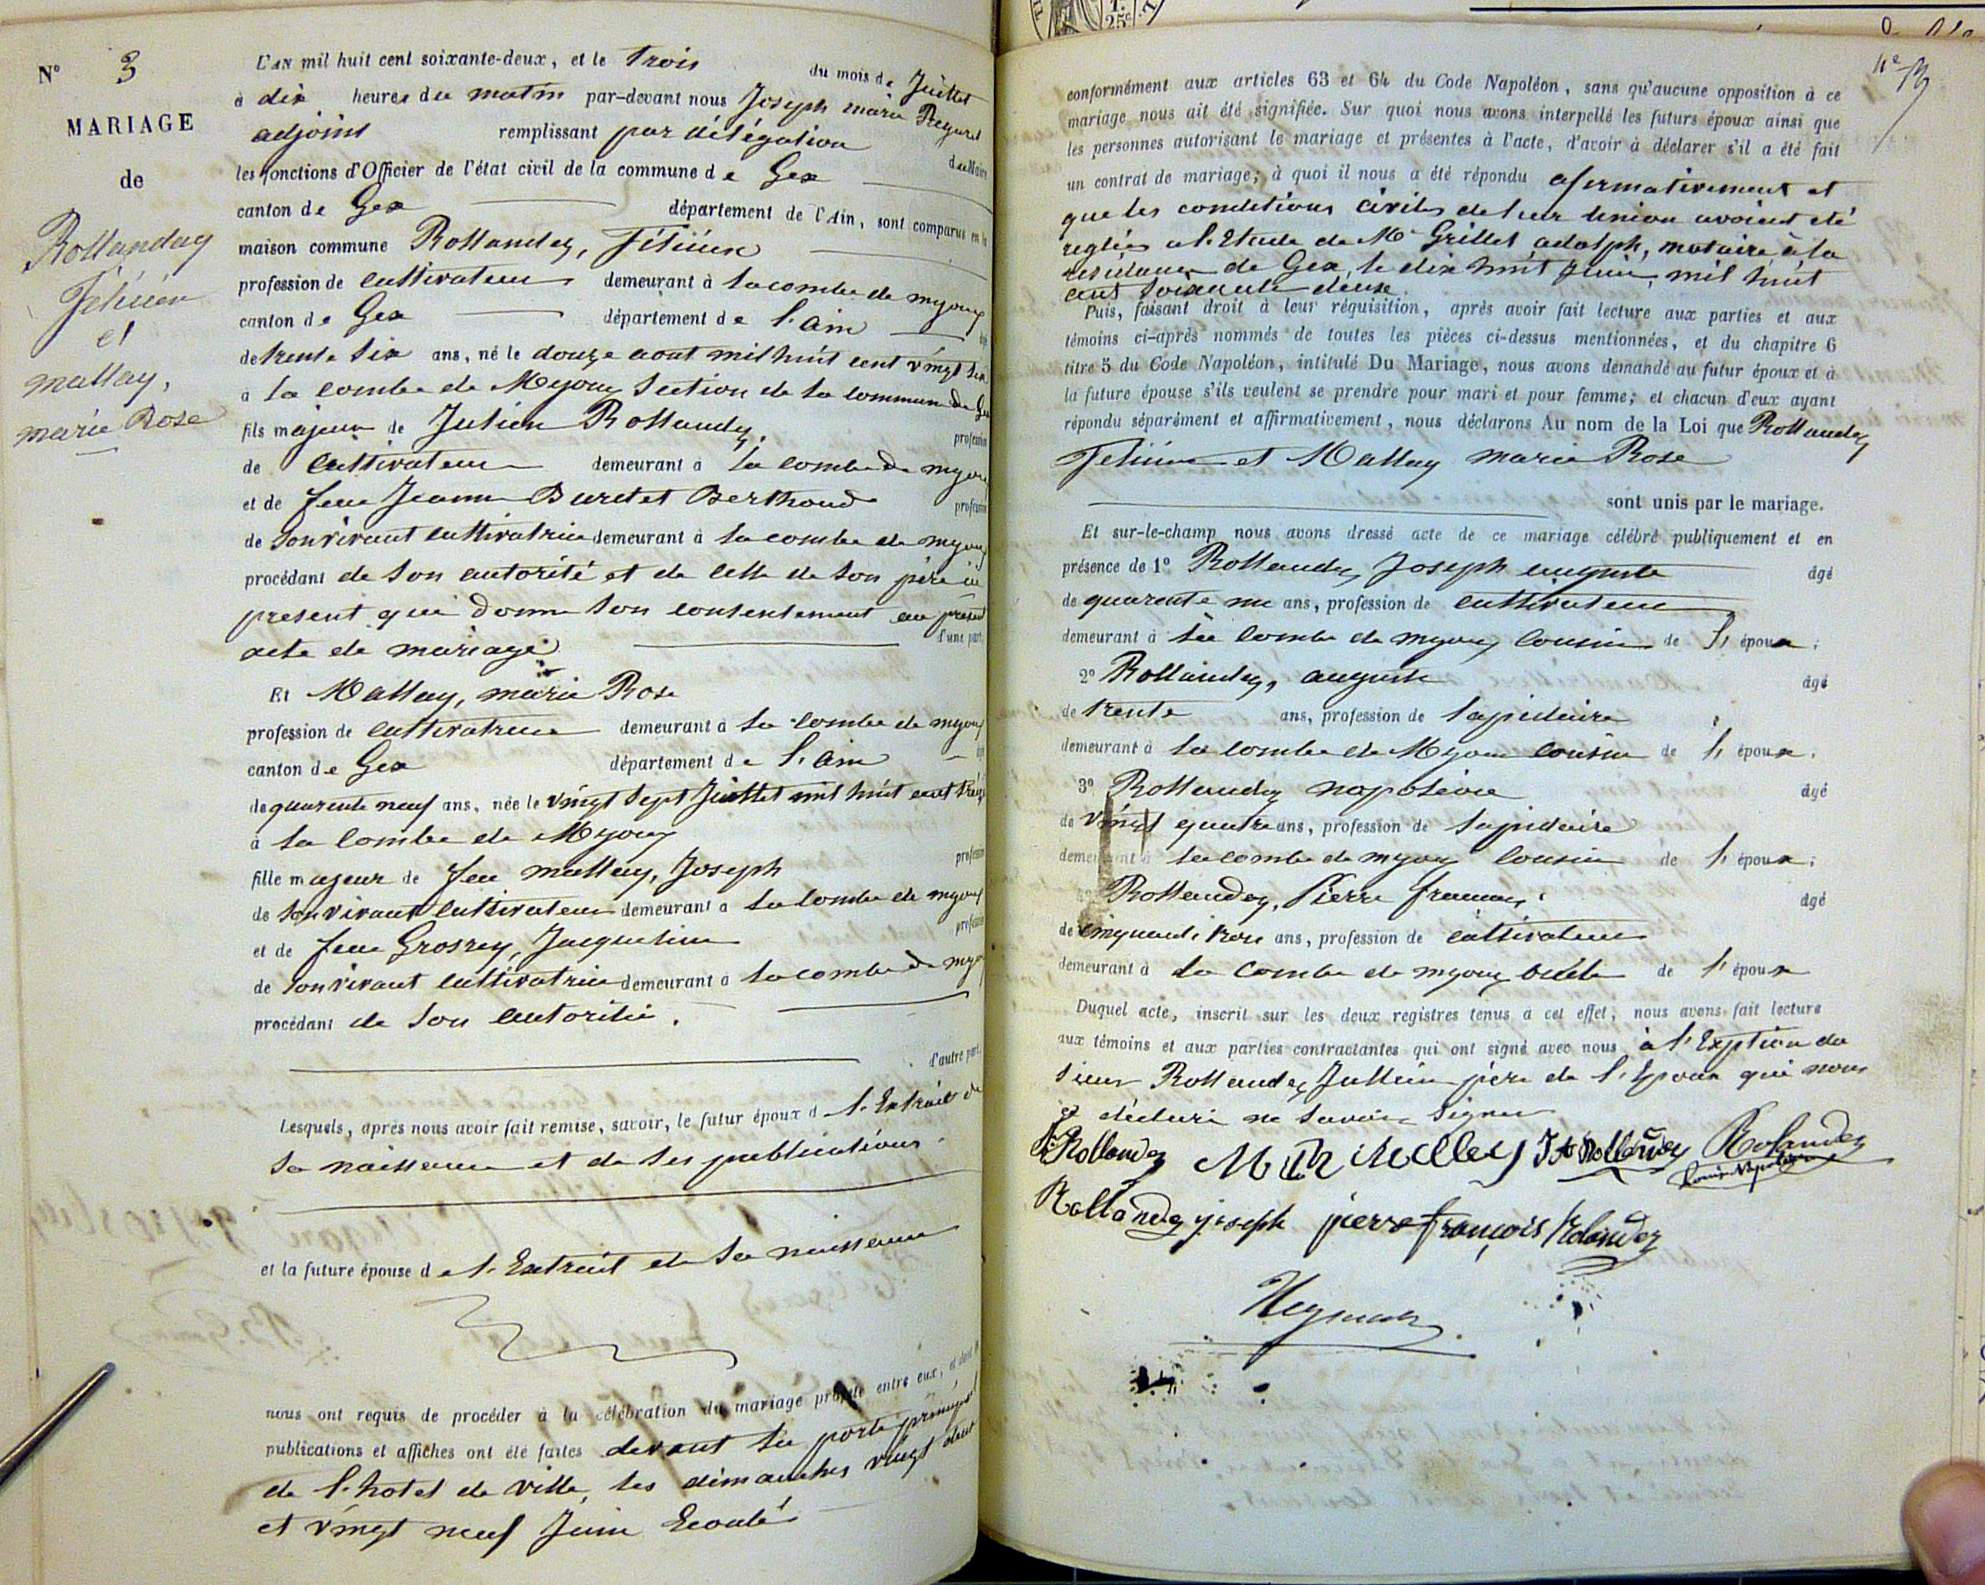 N° 3
MARIAGE
de
Rollandez
Félicien
et
mallay,
marie Rose
L'AN mil huit cent soixante-deux, et le trois du mois de Juillet
à dix heures du matin par-devant nous Joseph marie Regard
adjoint remplissant par délégation du Maire
les fonctions d'Officier de l'état civil de la commune de Gex
canton de Gex département de l'Ain, sont comparus en la
maison commune Rollandez, Félicien
profession de cultivateur demeurant à la combe de myoux
canton de Gex département de l'ain
de trente six ans, né le douze aout mil huit cent vingt six
à la combe de Myoux section de la commune de Gex
fils majeur de Julien Rollandez, profession
de cultivateur demeurant à la combe de myoux
et de feue Jeanne Burdet Berthoud profession
de son vivant cultivatrice demeurant à la combe de myoux
procédant de son autorité et de celle de son père ici
present qui donne son consentement au présent
acte de mariage d'une part
Et Mallay, marie Rose
profession de cultivatrice demeurant à la combe de myoux
canton de Gex département de l'ain
de quarente neuf ans, née le vingt sept Juillet mil huit cent treize
à la combe de Myoux
fille majeur de feu mallay, Joseph profession
de son vivant cultivateur demeurant à la combe de myoux
et de feue Grosrey, Jacqueline profession
de son vivant cultivatrice demeurant à la combe de myoux
procédant de son autorité.
d'autre part.
Lesquels, après nous avoir fait remise, savoir, le futur époux de l'Extrait de
sa naissance et de ses publications
et la future épouse de l'Extrait de sa naissance
nous ont requis de procéder à la célébration du mariage projeté entre eux, et dont les
publications et affiches ont été faites devant la porte principale
de l'hotel de ville, les dimanches vingt deux
et vingt neuf Juin Ecoulés
conformément aux articles 63 et 64 du Code Napoléon, sans qu'aucune opposition à ce
mariage nous ait été signifiée. Sur quoi nous avons interpellé les futurs époux ainsi que
les personnes autorisant le mariage et présentes à l'acte, d'avoir à déclarer s'il a été fait
un contrat de mariage; à quoi il nous a été répondu afirmativement et
que les conditions civiles de leur union avoient été
reglées a l'Etude de Me Grillet adolph, notaire à la
residence de Gex, le dix huit Juin mil huit
cent soixante deux.
Puis, faisant droit à leur réquisition, après avoir fait lecture aux parties et aux
témoins ci-après nommés de toutes les pièces ci-dessus mentionnées, et du chapitre 6
titre 5 du Code Napoléon, intitulé Du Mariage, nous avons demandé au futur époux et à
la future épouse s'ils veulent se prendre pour mari et pour femme; et chacun d'eux ayant
répondu séparément et affirmativement, nous déclarons Au nom de la Loi que Rollandez
Félicien et Mallay marie Rose
sont unis par le mariage.
Et sur-le-champ nous avons dressé acte de ce mariage célébré publiquement et en
présence de 1° Rollandez Joseph auguste âgé
de quarente un ans, profession de cultivateur
demeurant à la combe de myoux cousin de l'époux;
2° Rollandez, auguste âgé
de trente ans, profession de lapidaire
demeurant à la combe de Myoux cousin de l'époux.
3° Rollandez napoléon âgé
de vingt quatre ans, profession de lapidaire
demeurant à la combe de myoux cousin de l'époux;
Rollandez, Pierre françois, âgé
de cinquante trois ans, profession de cultivateur
demeurant à la Combe de myoux oncle de l'époux
Duquel acte, inscrit sur les deux registres tenus à cet effet, nous avons fait lecture
aux témoins et aux parties contractantes qui ont signé avec nous à l'Exption du
sieur Rollandez Jullien père de l'Epoux qui nous
a déclaré ne savoir signer
f. Rollandez M R Malley J A Rollandez Rolandez
Louis Napoléon
Rollandez joseph pierre françois Rolandez
Regard